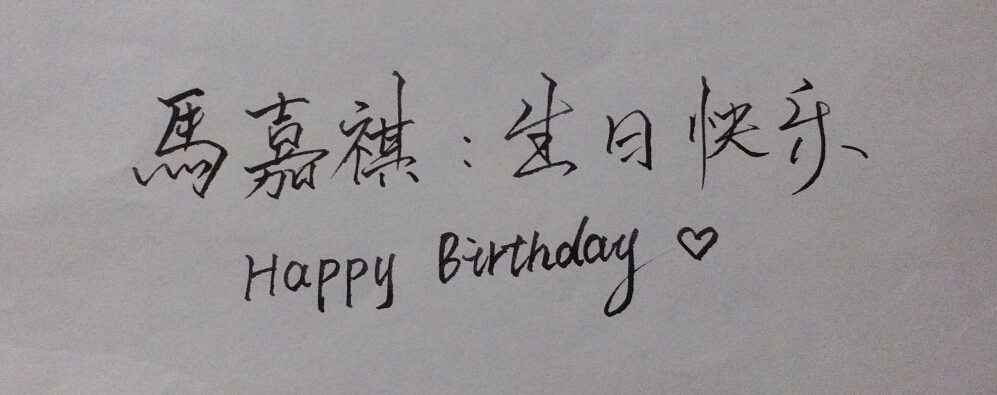 馬嘉祺：生日快乐
Happy Birthday ♡